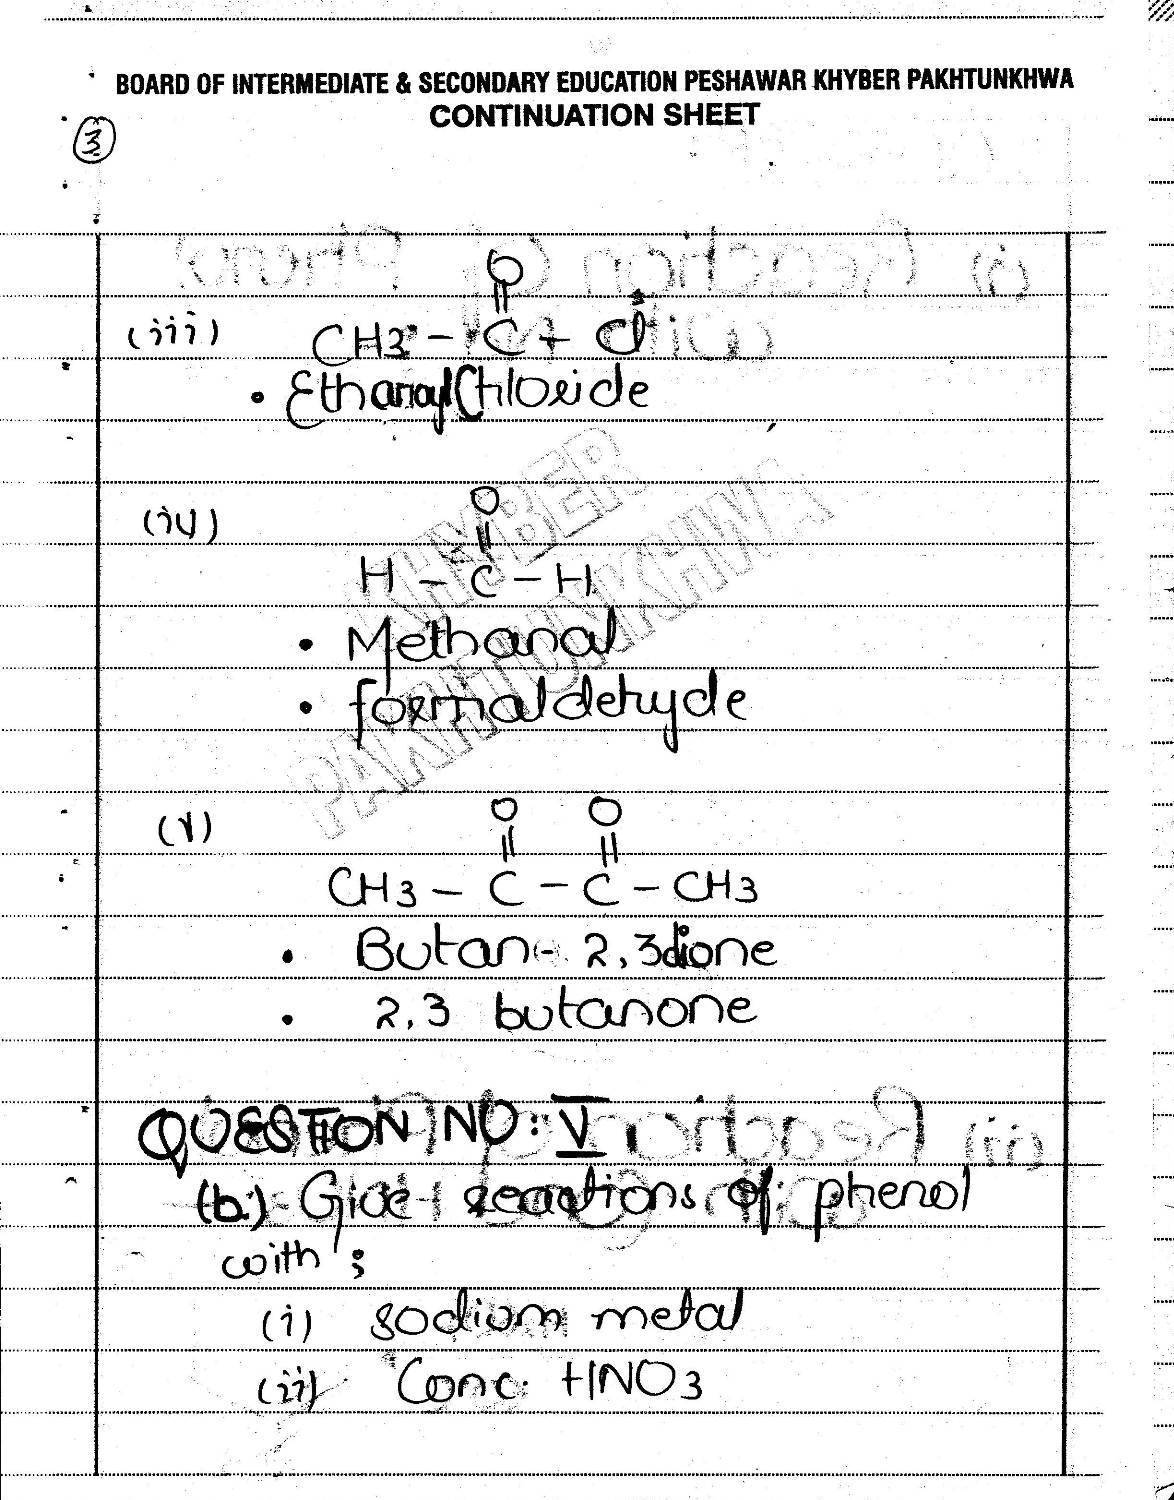 BOARD OF INTERMEDIATE & SECONDARY EDUCATION PESHAWAR KHYBER PAKHTUNKHWA
CONTINUATION SHEET
3
O
(iii) CH3 - C + Cl
• Ethanoyl Chloride
KHYBER
PAKHTUNKHWA
(iv) O
H - C - H
• Methanal
• formaldehyde
(v) O O
CH3 - C - C - CH3
• Butan - 2,3dione
• 2,3 butanone
QUESTION NO: V
(b.) Give reactions of phenol
with :
(i) sodium metal
(ii) Conc. HNO3